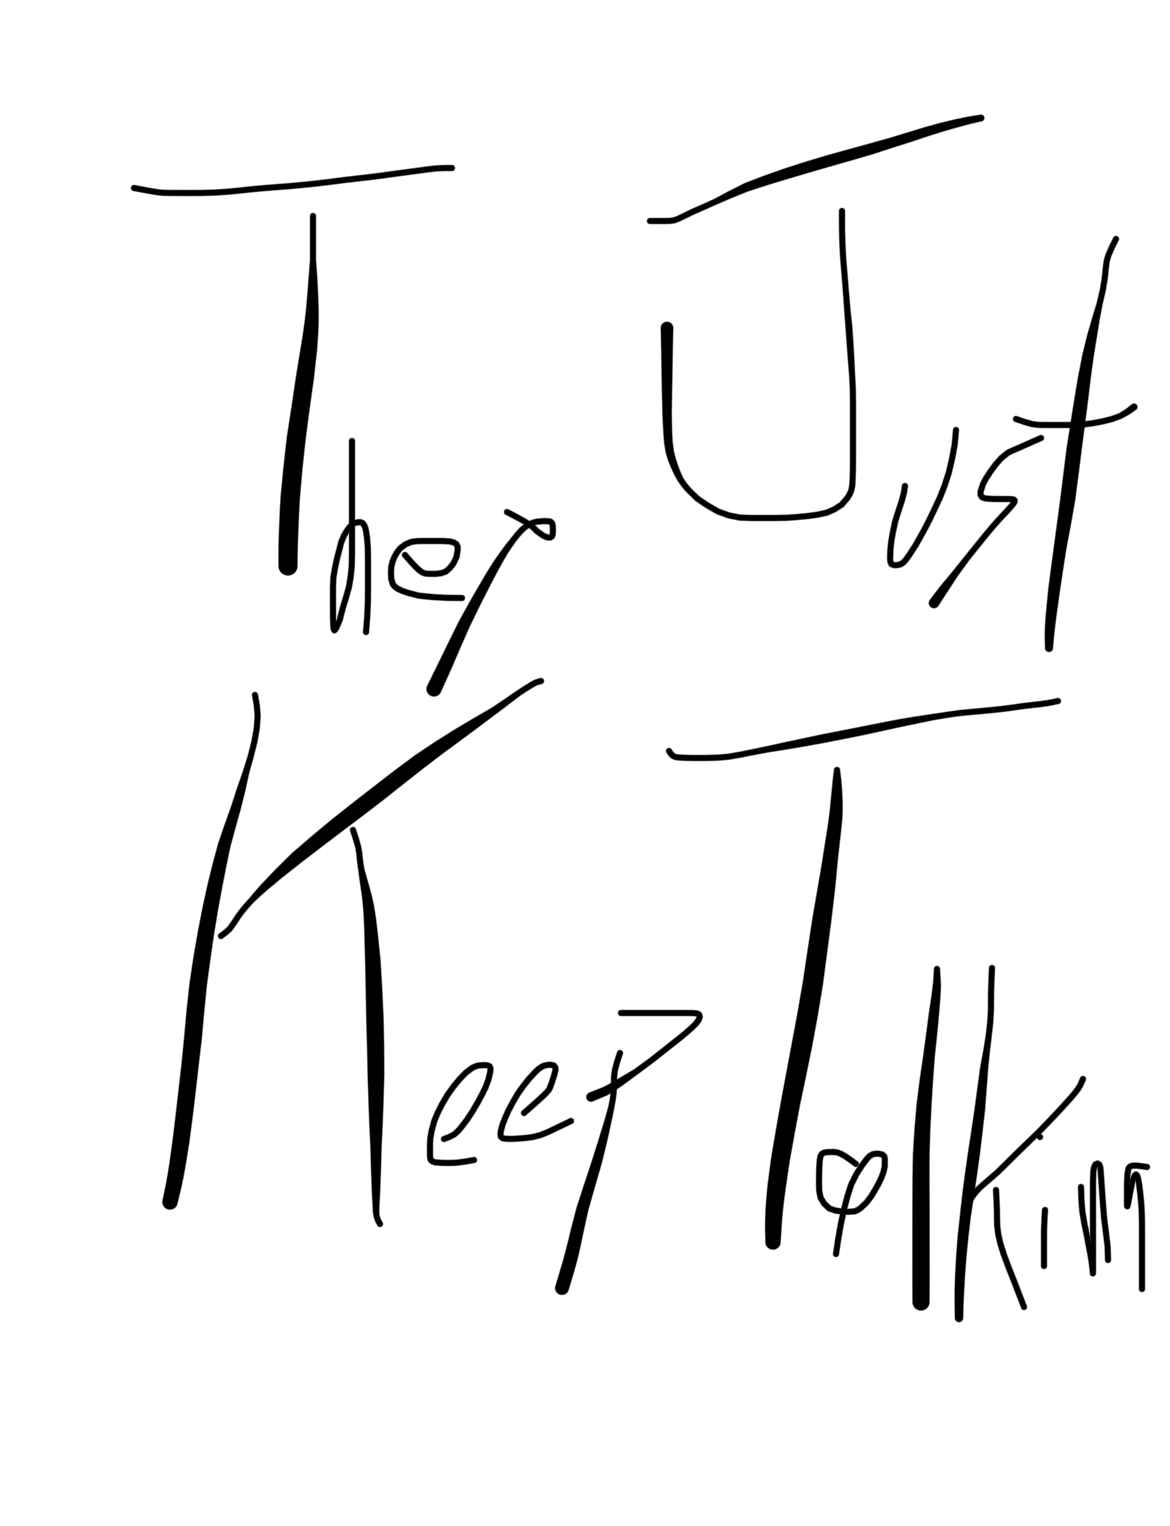 They Just
Keep Talking